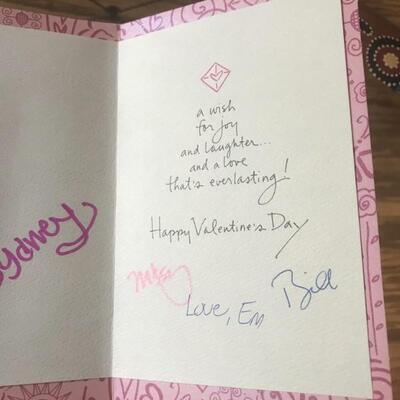 Sydney
a wish
for joy
and laughter...
and a love
that's everlasting!
Happy Valentine's Day
Love, Em
Bill